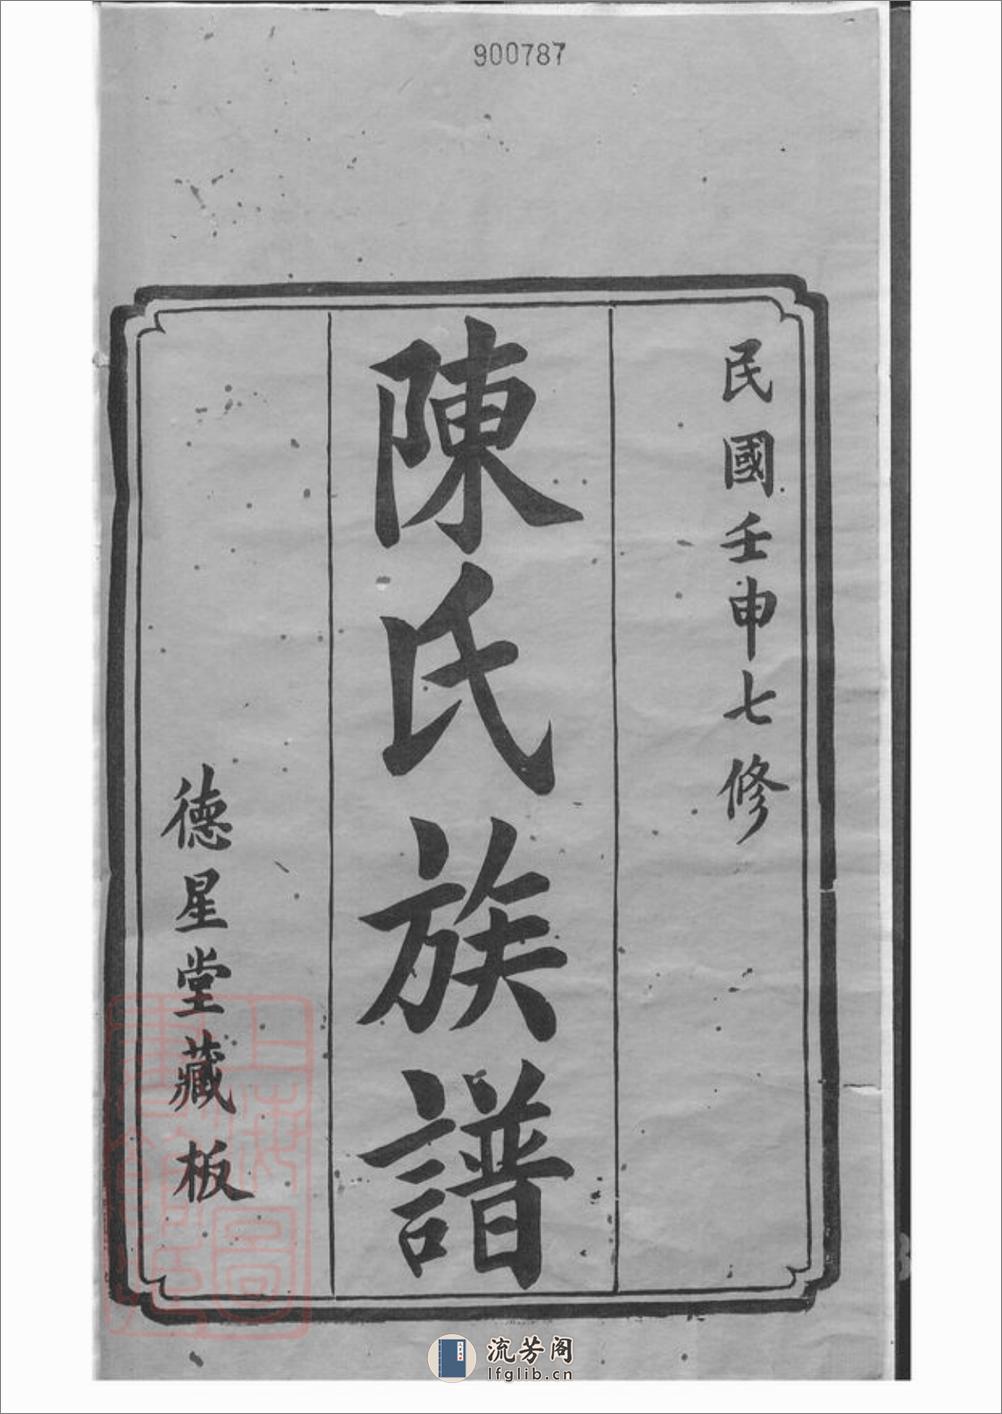 900787
民國壬申七修
陳氏族譜
德星堂藏板
流芳阁
lfglib.cn